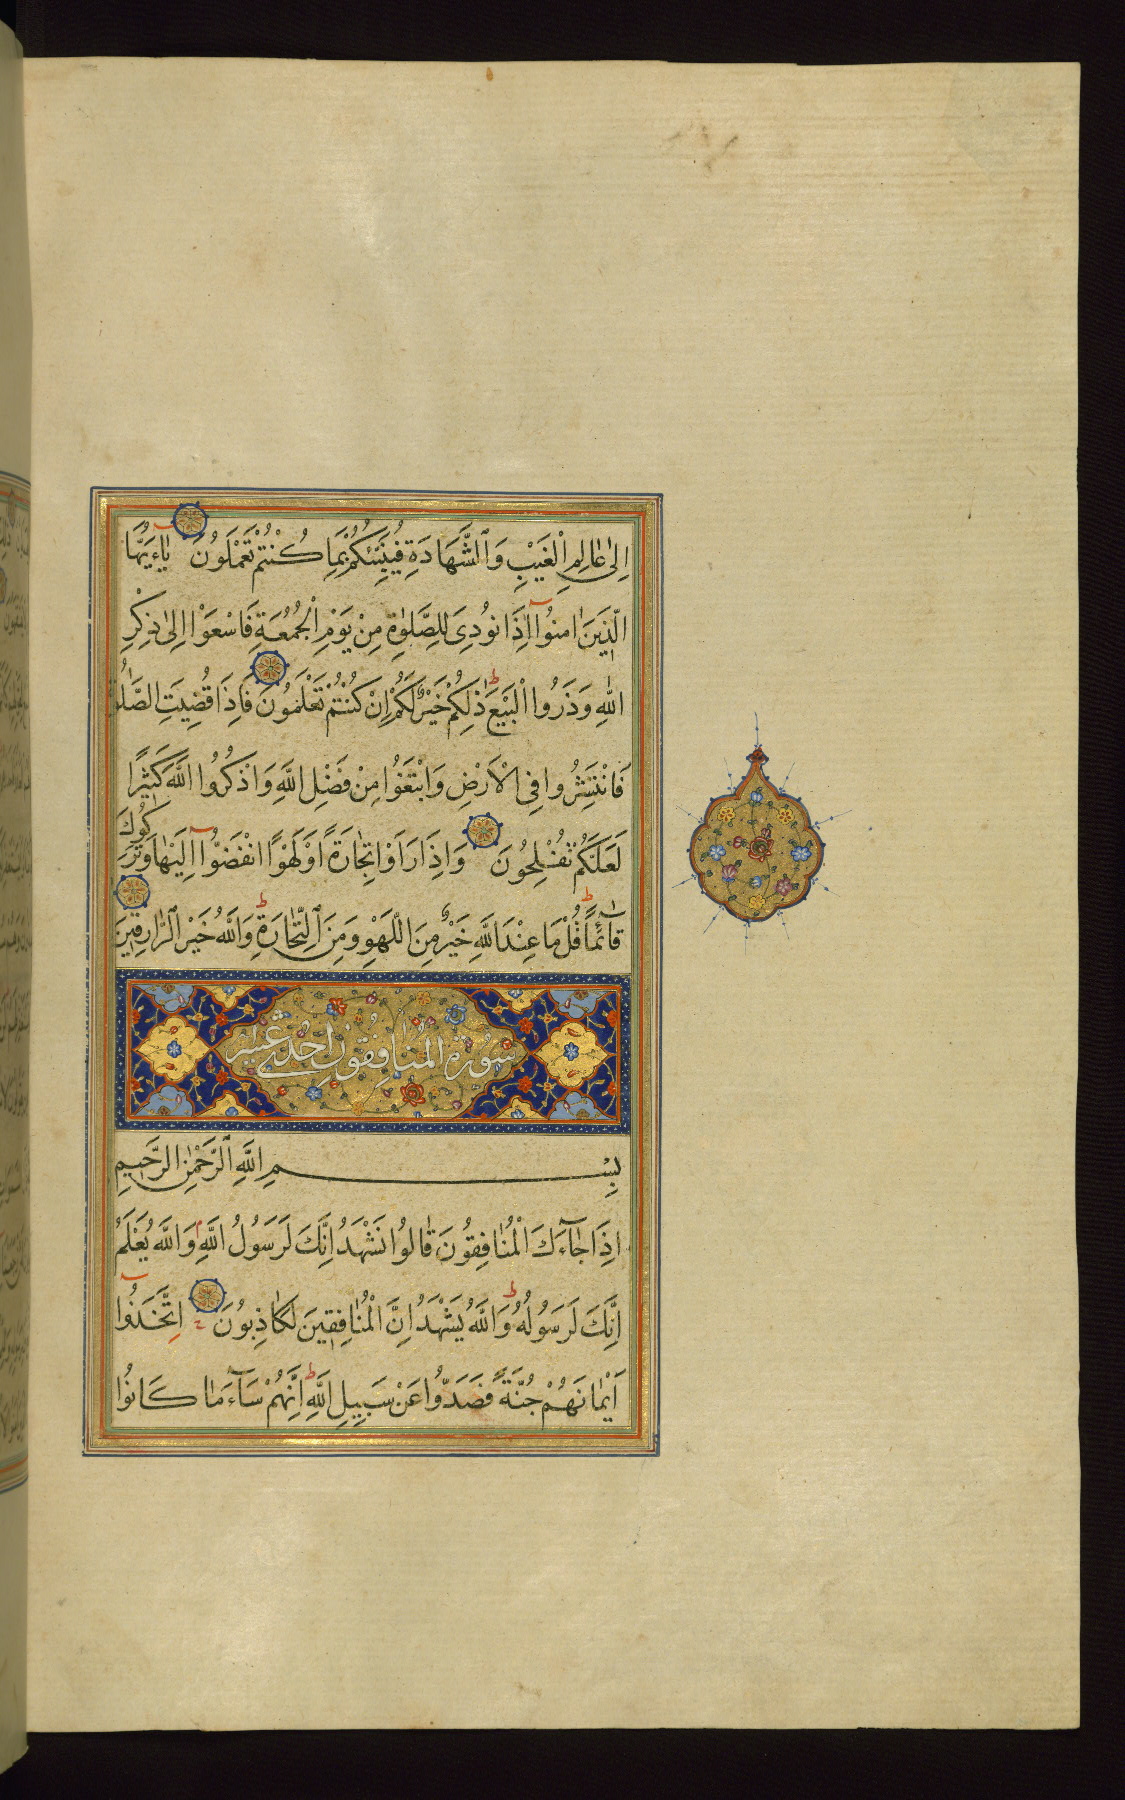 اِلٰى عَالِمِ الْغَيْبِ وَالشَّهَادَةِ فَيُنَبِّئُكُمْ بِمَا كُنْتُمْ تَعْمَلُونَ يٰاءَيُّهَا
الَّذِينَ اٰمَنُوا اِذَا نُودِىَ لِلصَّلٰوةِ مِنْ يَوْمِ الْجُمُعَةِ فَاسْعَوْا اِلٰى ذِكْرِ
اللّٰهِ وَذَرُوا الْبَيْعَ ط ذٰلِكُمْ خَيْرٌ لَكُمْ اِنْ كُنْتُمْ تَعْلَمُونَ فَاِذَا قُضِيَتِ الصَّلٰوةُ
فَانْتَشِرُوا فِى الْاَرْضِ وَابْتَغُوا مِنْ فَضْلِ اللّٰهِ وَاذْكُرُوا اللّٰهَ كَثِيرًا
لَعَلَّكُمْ تُفْلِحُونَ وَاِذَا رَاَوْا تِجَارَةً اَوْ لَهْوًا انْفَضُّوا اِلَيْهَا وَتَرَكُوكَ
قَائِمًا ط قُلْ مَا عِنْدَ اللّٰهِ خَيْرٌ مِنَ اللَّهْوِ وَمِنَ التِّجَارَةِ ط وَاللّٰهُ خَيْرُ الرَّازِقِينَ
سورة المنافقون احدى عشر
بِسْمِ اللّٰهِ الرَّحْمٰنِ الرَّحِيمِ
اِذَا جَاءَكَ الْمُنَافِقُونَ قَالُوا نَشْهَدُ اِنَّكَ لَرَسُولُ اللّٰهِ م وَاللّٰهُ يَعْلَمُ
اِنَّكَ لَرَسُولُهُ ط وَاللّٰهُ يَشْهَدُ اِنَّ الْمُنَافِقِينَ لَكَاذِبُونَ اِتَّخَذُوا
اَيْمَانَهُمْ جُنَّةً فَصَدُّوا عَنْ سَبِيلِ اللّٰهِ ط اِنَّهُمْ سَاءَ مَا كَانُوا